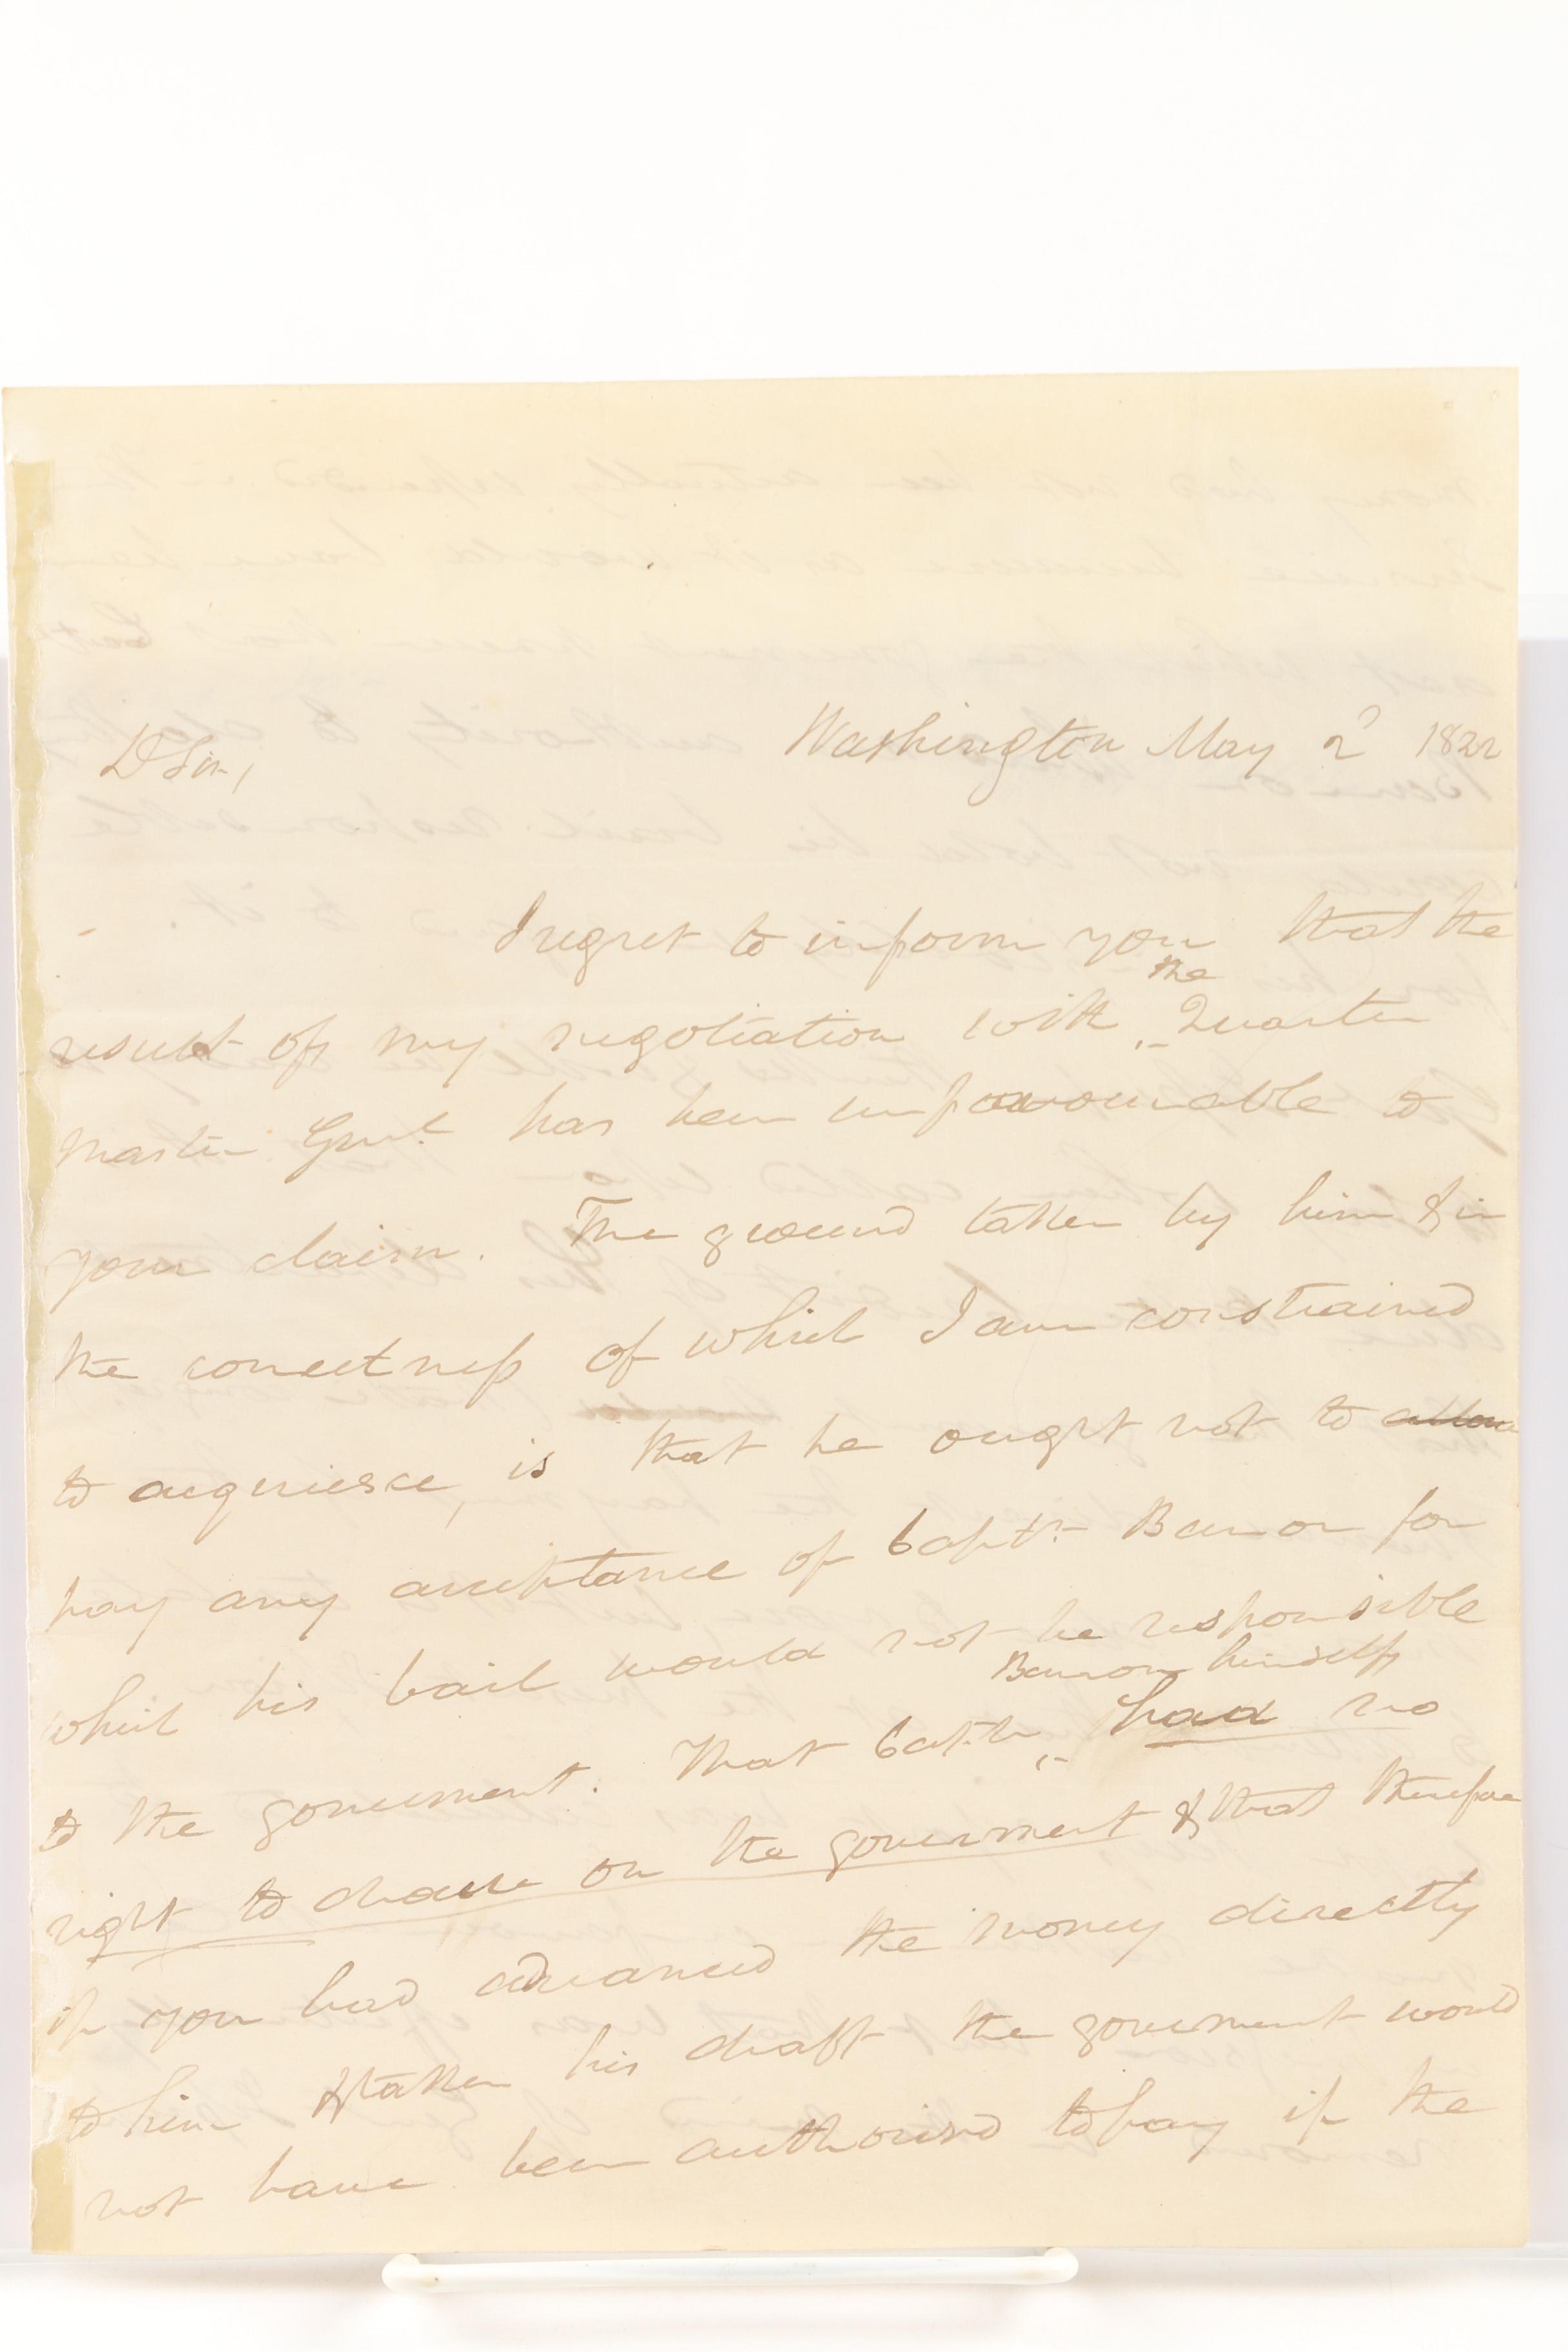 Washington May 2d 1822
D Sir,
I regret to inform you that the
result of my negotiation with the Quarter
Master Genl. has been unfavourable to
your claim. The ground taken by him & in
the correctness of which I am constrained
to acquiesce, is that he ought not to allow
pay any acceptance of Captn. Benson for
which his bail would not be responsible
to the government. That Captn Benson himself had no
right to draw on the government & that therefore
if you had advanced the money directly
to him & taken his draft the government would
not have been authorised to pay if the